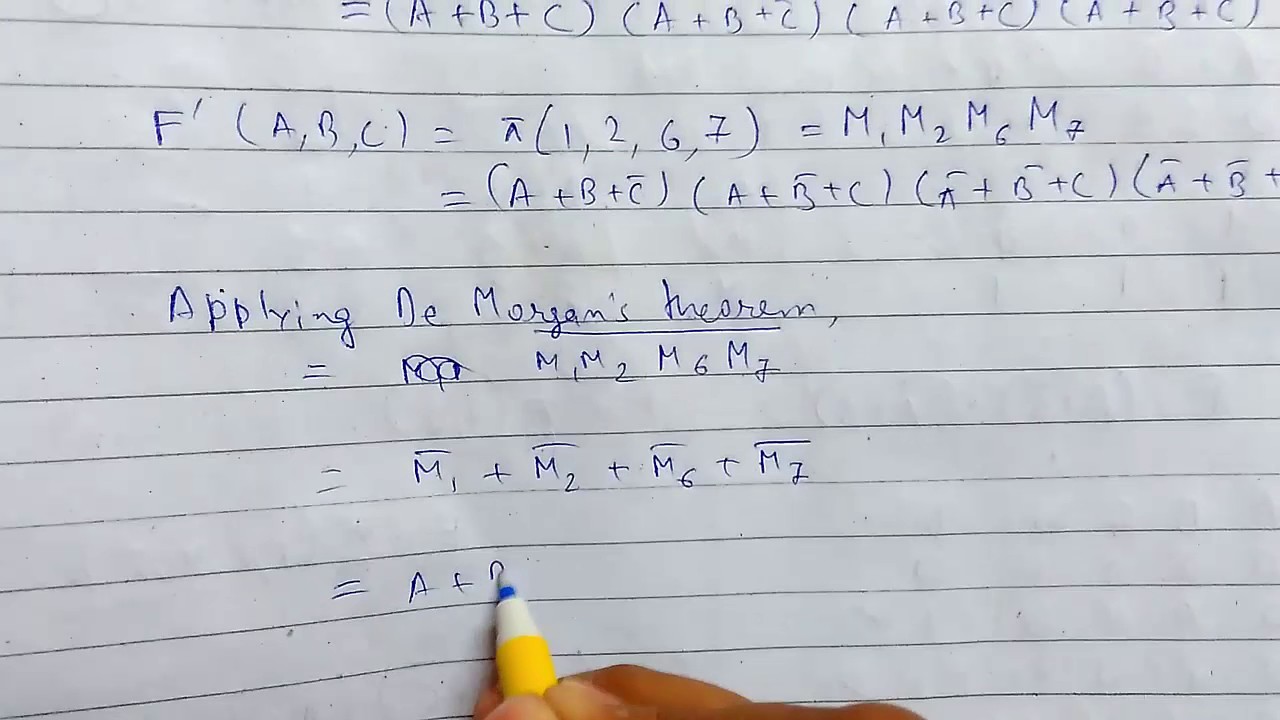 = (A + B + C) (A + B + C̅) (A + B + C) (A + B + C)
F' (A, B, C) = π(1, 2, 6, 7) = M₁ M₂ M₆ M₇
= (A + B + C̅) (A + B̅ + C) (A̅ + B̅ + C) (A̅ + B̅ +
Applying De Morgan's theorem,
= M₁ M₂ M₆ M₇
= M̅₁ + M̅₂ + M̅₆ + M̅₇
= A + B